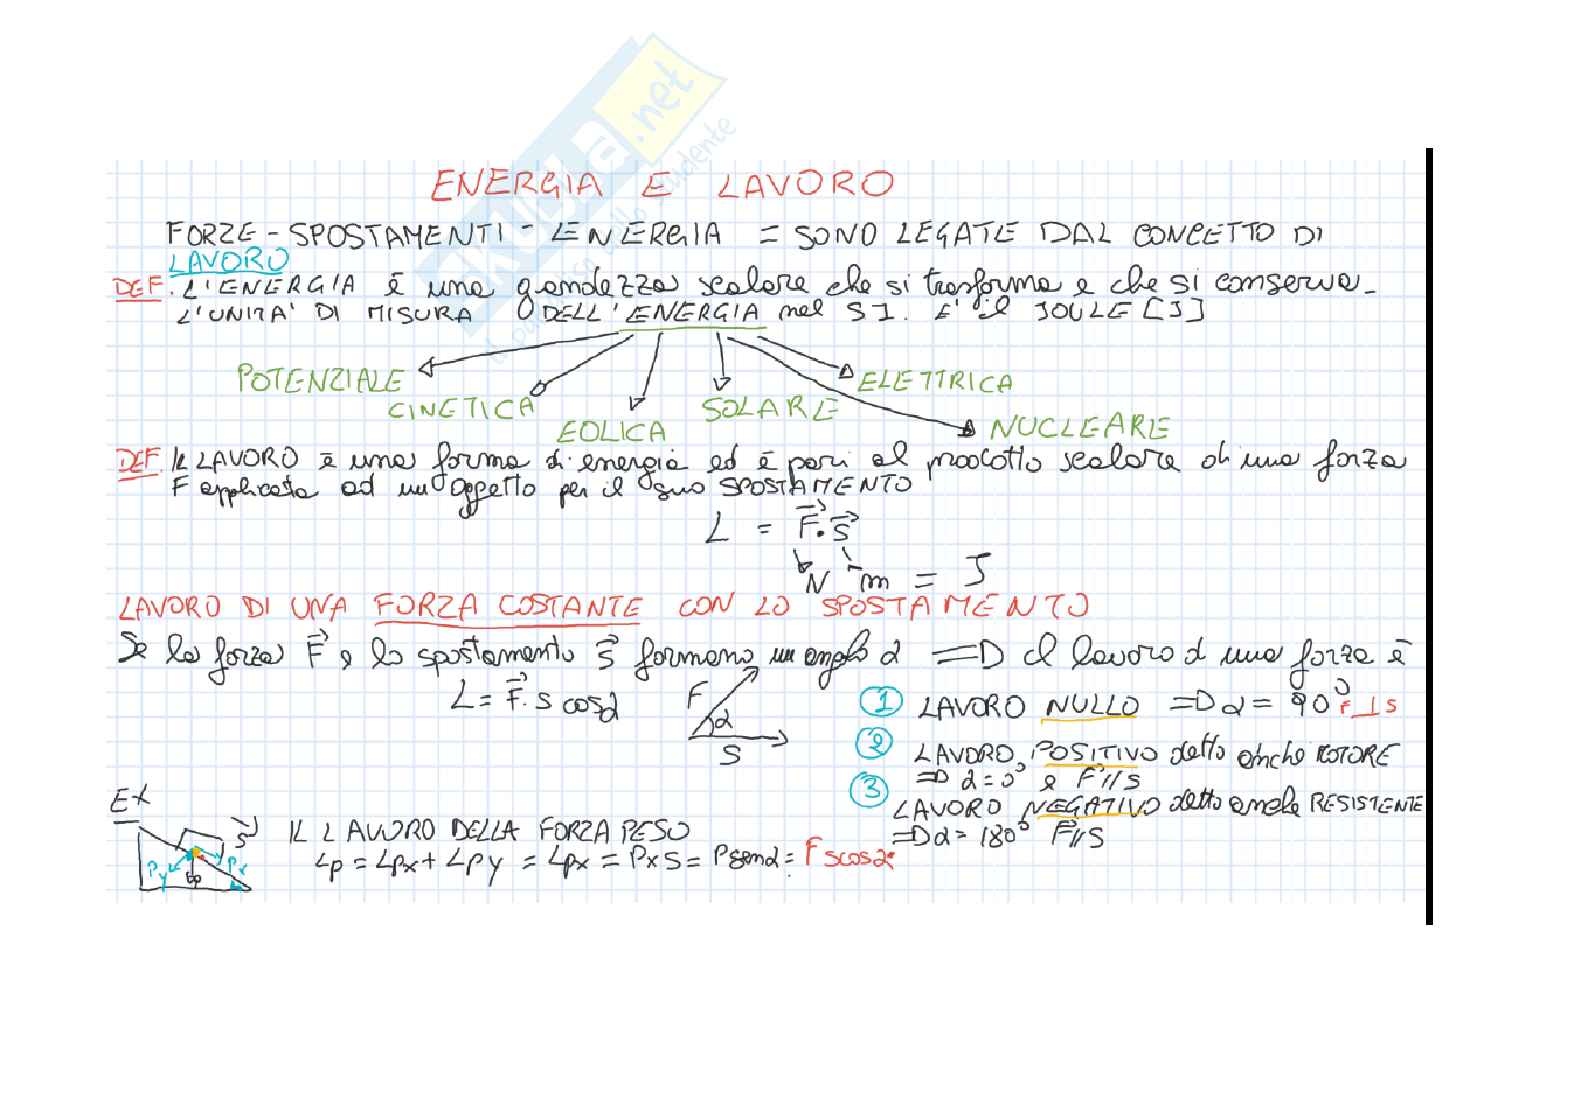 SKUOLA.net
il paradiso dello studente
ENERGIA E LAVORO
FORZE - SPOSTAMENTI - ENERGIA = SONO LEGATE DAL CONCETTO DI
LAVORO
DEF. L'ENERGIA è una grandezza scalare che si trasforma e che si conserva.
L'UNITA' DI MISURA DELL'ENERGIA nel SI. E' il JOULE [J]
POTENZIALE
CINETICA
EOLICA
SOLARE
ELETTRICA
NUCLEARE
DEF. IL LAVORO è una forma di energia ed è pari al prodotto scalare di una forza
F applicata ad un oggetto per il suo SPOSTAMENTO
L = F⃗·s⃗
N m = J
LAVORO DI UNA FORZA COSTANTE CON LO SPOSTAMENTO
Se la forza F⃗ e lo spostamento s⃗ formano un angolo α => Il lavoro d una forza è
L = F⃗·S cosα
F
α
S
1 LAVORO NULLO => α = 90° F⊥S
2 LAVORO POSITIVO detto anche MOTORE
=> α = 0° e F⃗//S
3 LAVORO NEGATIVO detto anche RESISTENTE
=> α = 180° F⃗//S
Ex
S⃗
Px
Py
P
IL LAVORO DELLA FORZA PESO
Lp = Lpx + Lpy = Lpx = Px S = P senα = F s cosα